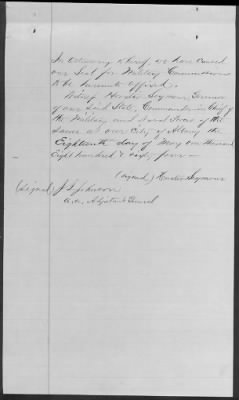 In testimony whereof, we have caused
our Seal for Military Commissions
to be hereunto affixed.
Witness Horatio Seymour, Governor
of our said State, Commander in Chief of
the Military and Naval Forces of the
Same at our City of Albany the
Eighteenth day of May one thousand
Eight hundred & sixty four —
(signed) Horatio Seymour
(signed) J. Johnson
Adjutant General